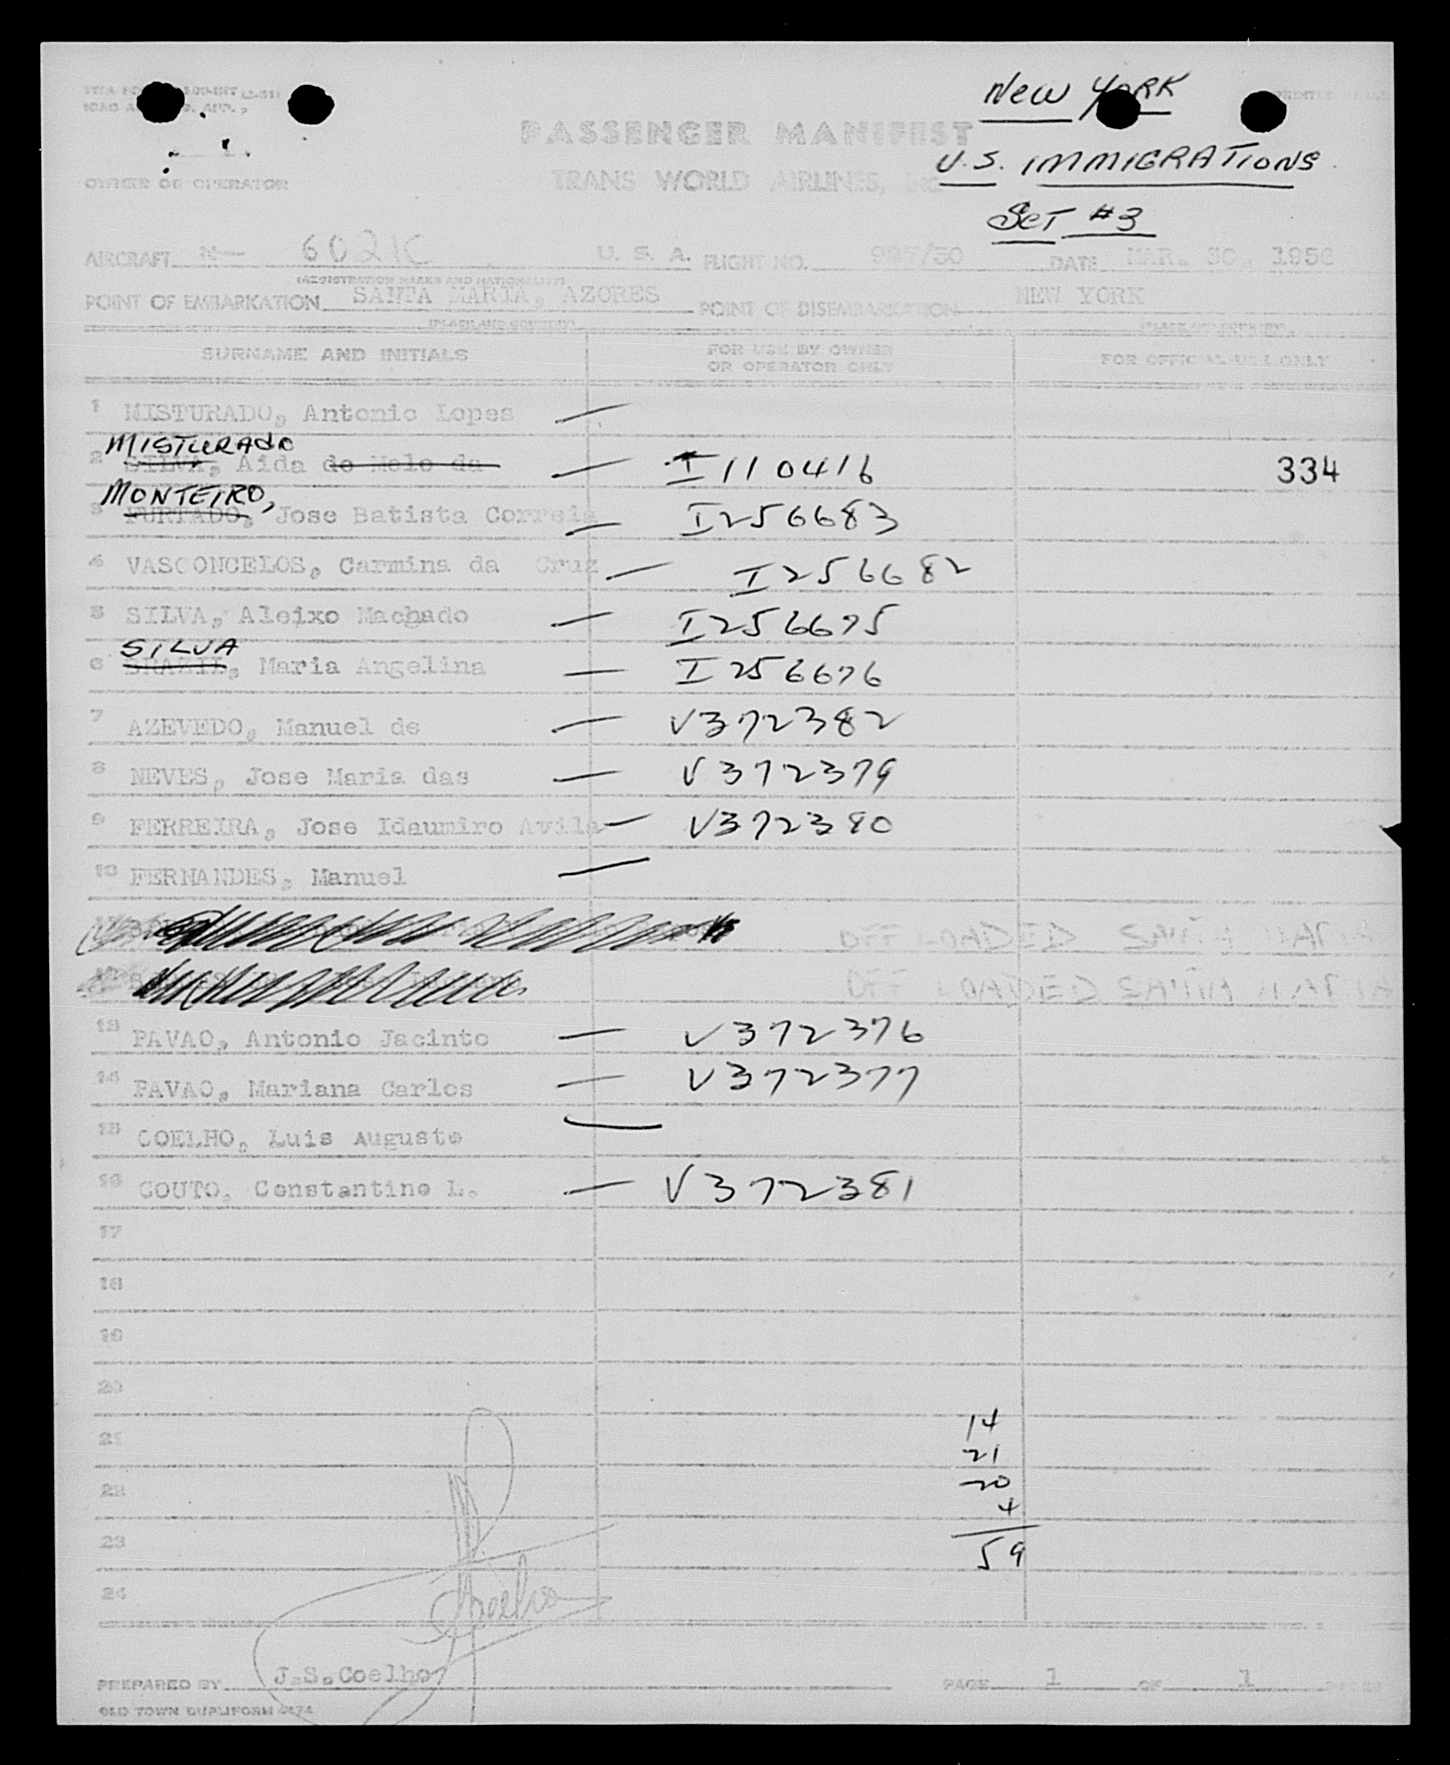 New YORK
PASSENGER MANIFEST
U.S. IMMIGRATIONS
OWNER OR OPERATOR TRANS WORLD AIRLINES, INC.
SET #3
AIRCRAFT N- 6021C U. S. A. FLIGHT NO. DATE MAR. 30,
(REGISTRATION MARKS AND NATIONALITY)
POINT OF EMBARKATION SANTA MARIA, AZORES POINT OF DISEMBARKATION NEW YORK
SURNAME AND INITIALS FOR USE BY OWNER OR OPERATOR ONLY FOR OFFICIAL USE ONLY
1 MISTURADO, Antonio Lopes —
MISTURADO
2 SILVA, Aida de Melo da — I110416 334
MONTEIRO,
3 FURTADO, Jose Batista Correia — I256683
4 VASCONCELOS, Carmina da Cruz — I256682
5 SILVA, Aleixo Machado — I256675
SILVA
6 BRAZIL, Maria Angelina — I256676
7 AZEVEDO, Manuel de — V372382
8 NEVES, Jose Maria das — V372379
9 FERREIRA, Jose Idaumiro Avila — V372380
10 FERNANDES, Manuel —
OFF LOADED SANTA MARIA
OFF LOADED SANTA MARIA
13 PAVAO, Antonio Jacinto — V372376
14 PAVAO, Mariana Carlos — V372377
15 COELHO, Luis Augusto —
16 COUTO, Constantino L. — V372381
17
18
19
20
21
22
23
24
14
21
20
4
59
PREPARED BY J.S.Coelho PAGE 1 OF 1 PAGES
OLD TOWN DUPLIFORM